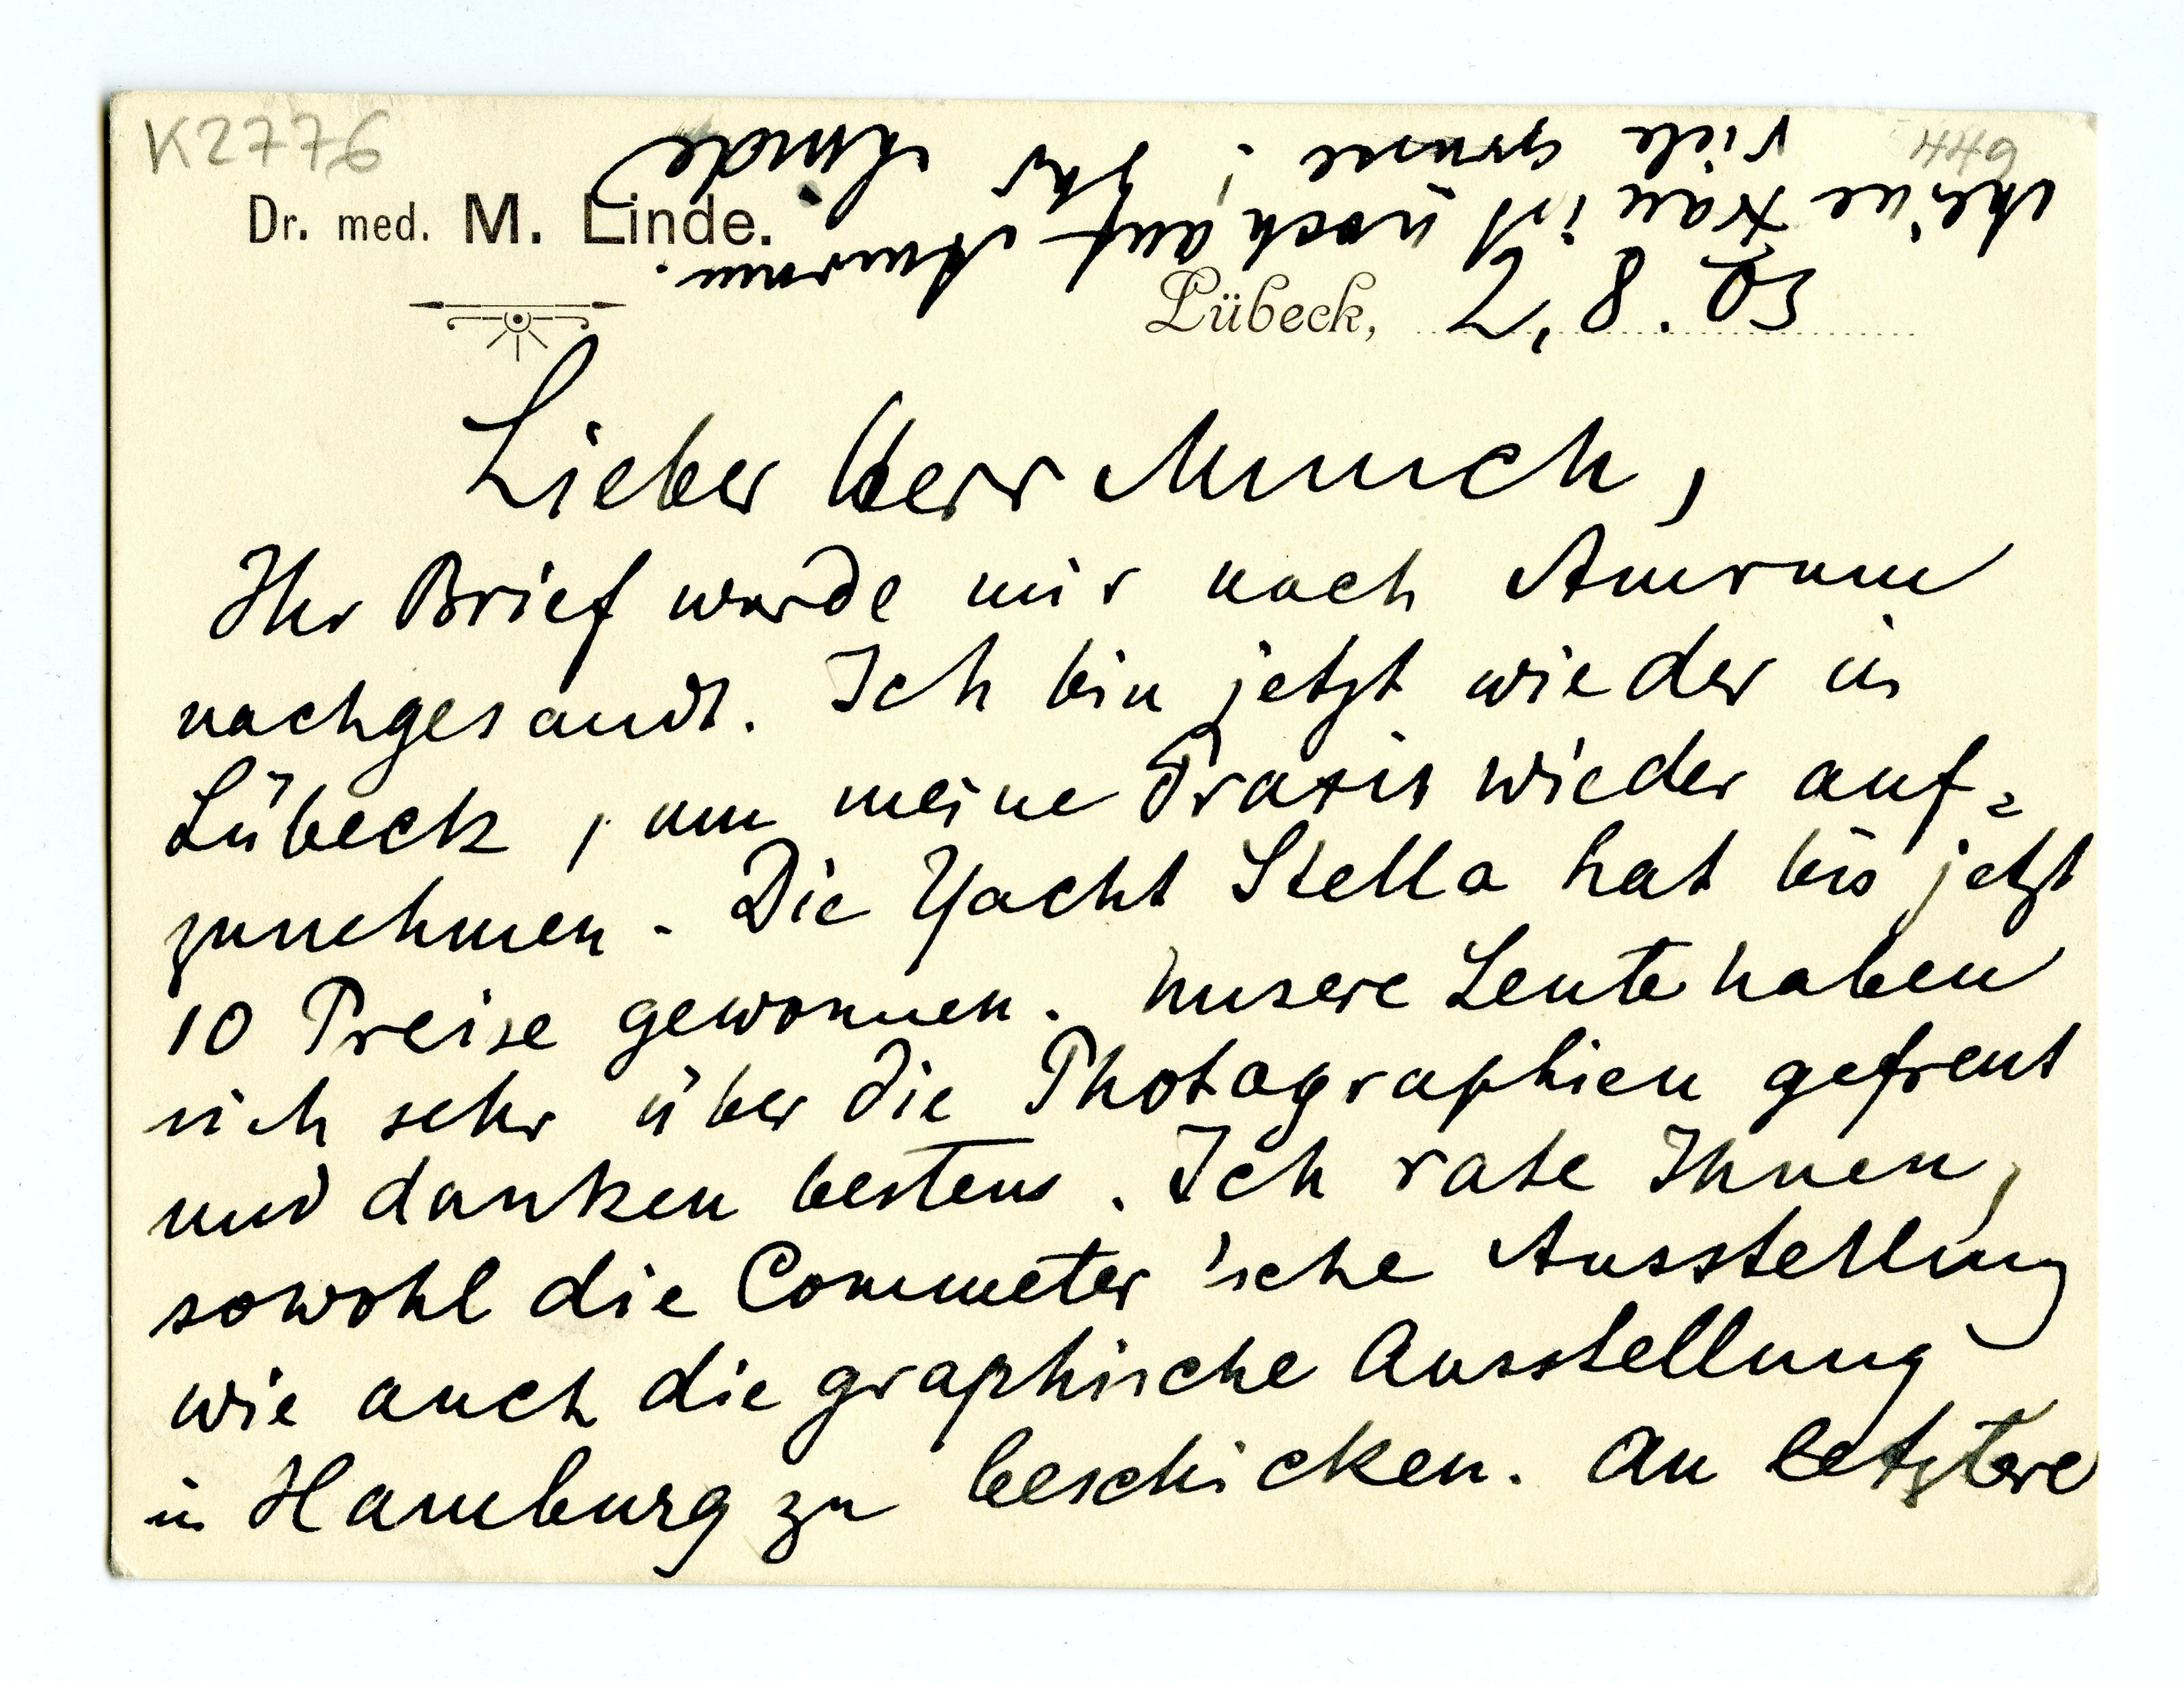 K2776
449
Dr. med. M. Linde.
Lübeck,
Lieber Herr Munch,
Ihr Brief wurde mir nach Amrum
nachgesandt. Ich bin jetzt wieder in
Lübeck, um meine Praxis wieder auf=
zunehmen. Die Yacht Stella hat bis jetzt
10 Preise gewonnen. Unsere Leute haben
sich sehr über die Photographien gefreut
und danken bestens. Ich rate Ihnen,
sowohl die Commeter'sche Ausstellung
wie auch die graphische Ausstellung
in Hamburg zu beschicken. An letztere
Meine Frau ist noch auf Amrum.
Viele Grüsse! Ihr Linde